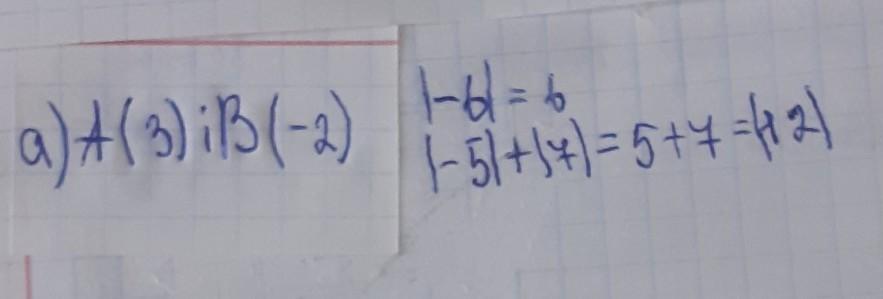 а) A(3) і B(-2)
|-6| = 6
|-5|+|7| = 5+7 = |12|